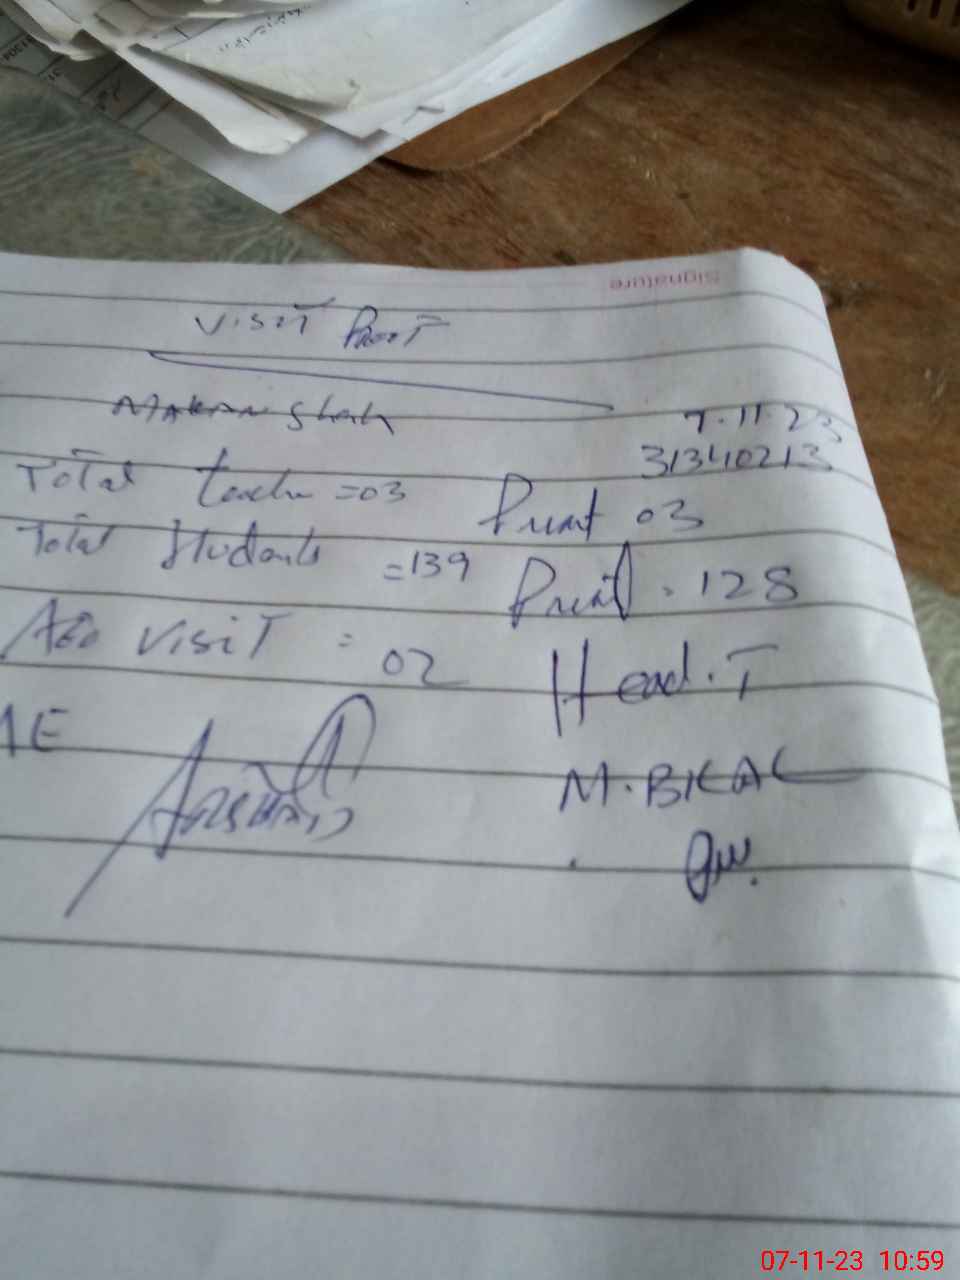 Signature
Visit Proof
Makan Shah
7.11.23
31340213
Total teacher =03 Present 03
Total Students =139 Present . 128
AEO Visit = 02
Head.T
AE
M.BILAL
07-11-23 10:59